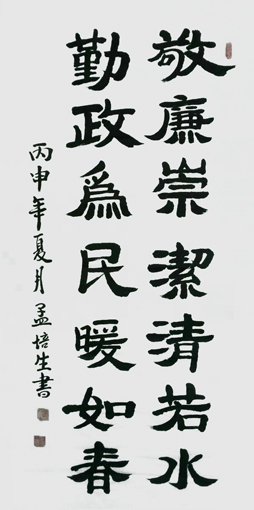 敬廉崇潔清若水
勤政爲民暖如春
丙申年夏月孟培生書